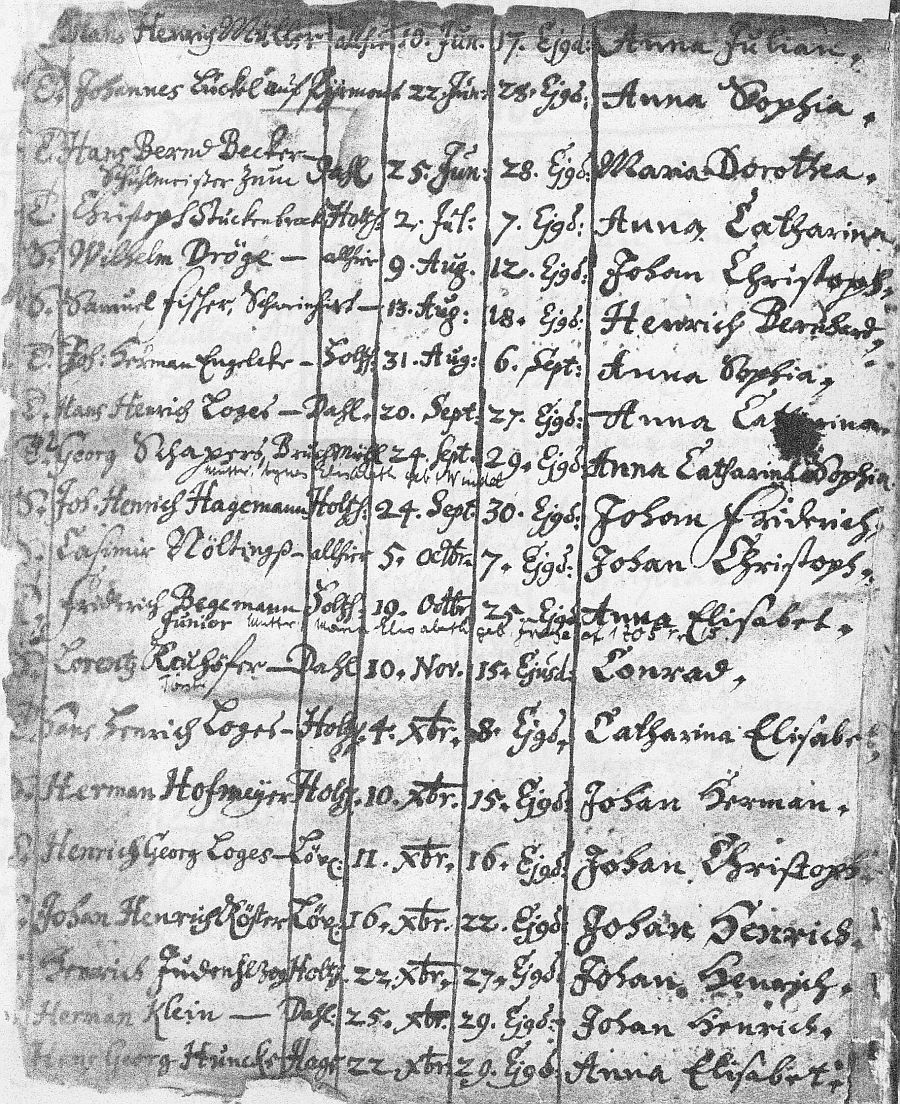 Henrich Müller allhier 10. Jun. 17. Ejgd: Anna Julian.
T. Johannes Lückel auf Pyrmont 22. Jun: 28. Ejgd: Anna Sophia.
T. Hans Bernd Becker
Schulmeister zum Dahl 25. Jun: 28. Ejgd: Maria Dorothea.
T. Christoph Stuckenbrock Holtzh: 2. Jul: 7. Ejgd: Anna Catharina.
S. Wilhelm Dröge — allhier 9. Aug. 12. Ejgd: Johan Christoph.
S. Samuel Fischer, Schweinhirt — 13. Aug: 18. Ejgd: Henrich Bernhard.
T. Joh: Herman Engelcke — Holtzh: 31. Aug: 6. Sept: Anna Sophia.
T. Hans Henrich Loges — Dahl. 20. Sept: 27. Ejgd: Anna Catharina.
T. Georg Schapers, Bruchmöll 24. Sept. 29. Ejgd: Anna Catharina Sophia
Mutter Elisabeth geb.
S. Joh. Henrich Hagemann Holtzh: 24. Sept. 30. Ejgd: Johan Friderich.
S. Casimir Nöltingß — allhier 5. Octbr. 7. Ejgd: Johan Christoph.
Friderich Begemann Holtzh: 19. Octbr 25. Ejgd Anna Elisabet.
Junior Mutter: Maria Elisabeth geb.
S. Lorentz — Dahl 10. Nov. 15. Ejusd: Conrad.
Hans Henrich Loges — Holtzh. 4. Xbr. 8. Ejgd. Catharina Elisabet
S. Herman Hofmeyer Holtzh. 10. Xbr. 15. Ejgd: Johan Herman.
S. Henrich Georg Loges — Löw: 11. Xbr. 16. Ejgd: Johan Christoph.
Johan Henrich Köster Löw: 16. Xbr. 22. Ejgd: Johan Henrich.
Henrich Holtzh. 22. Xbr. 27. Ejgd: Johan Henrich.
Herman Klein — Dahl: 25. Xbr. 29. Ejgd: Johan Henrich.
Hans Georg Huncke Hage 22. Xbr. 29. Ejgd: Anna Elisabet.